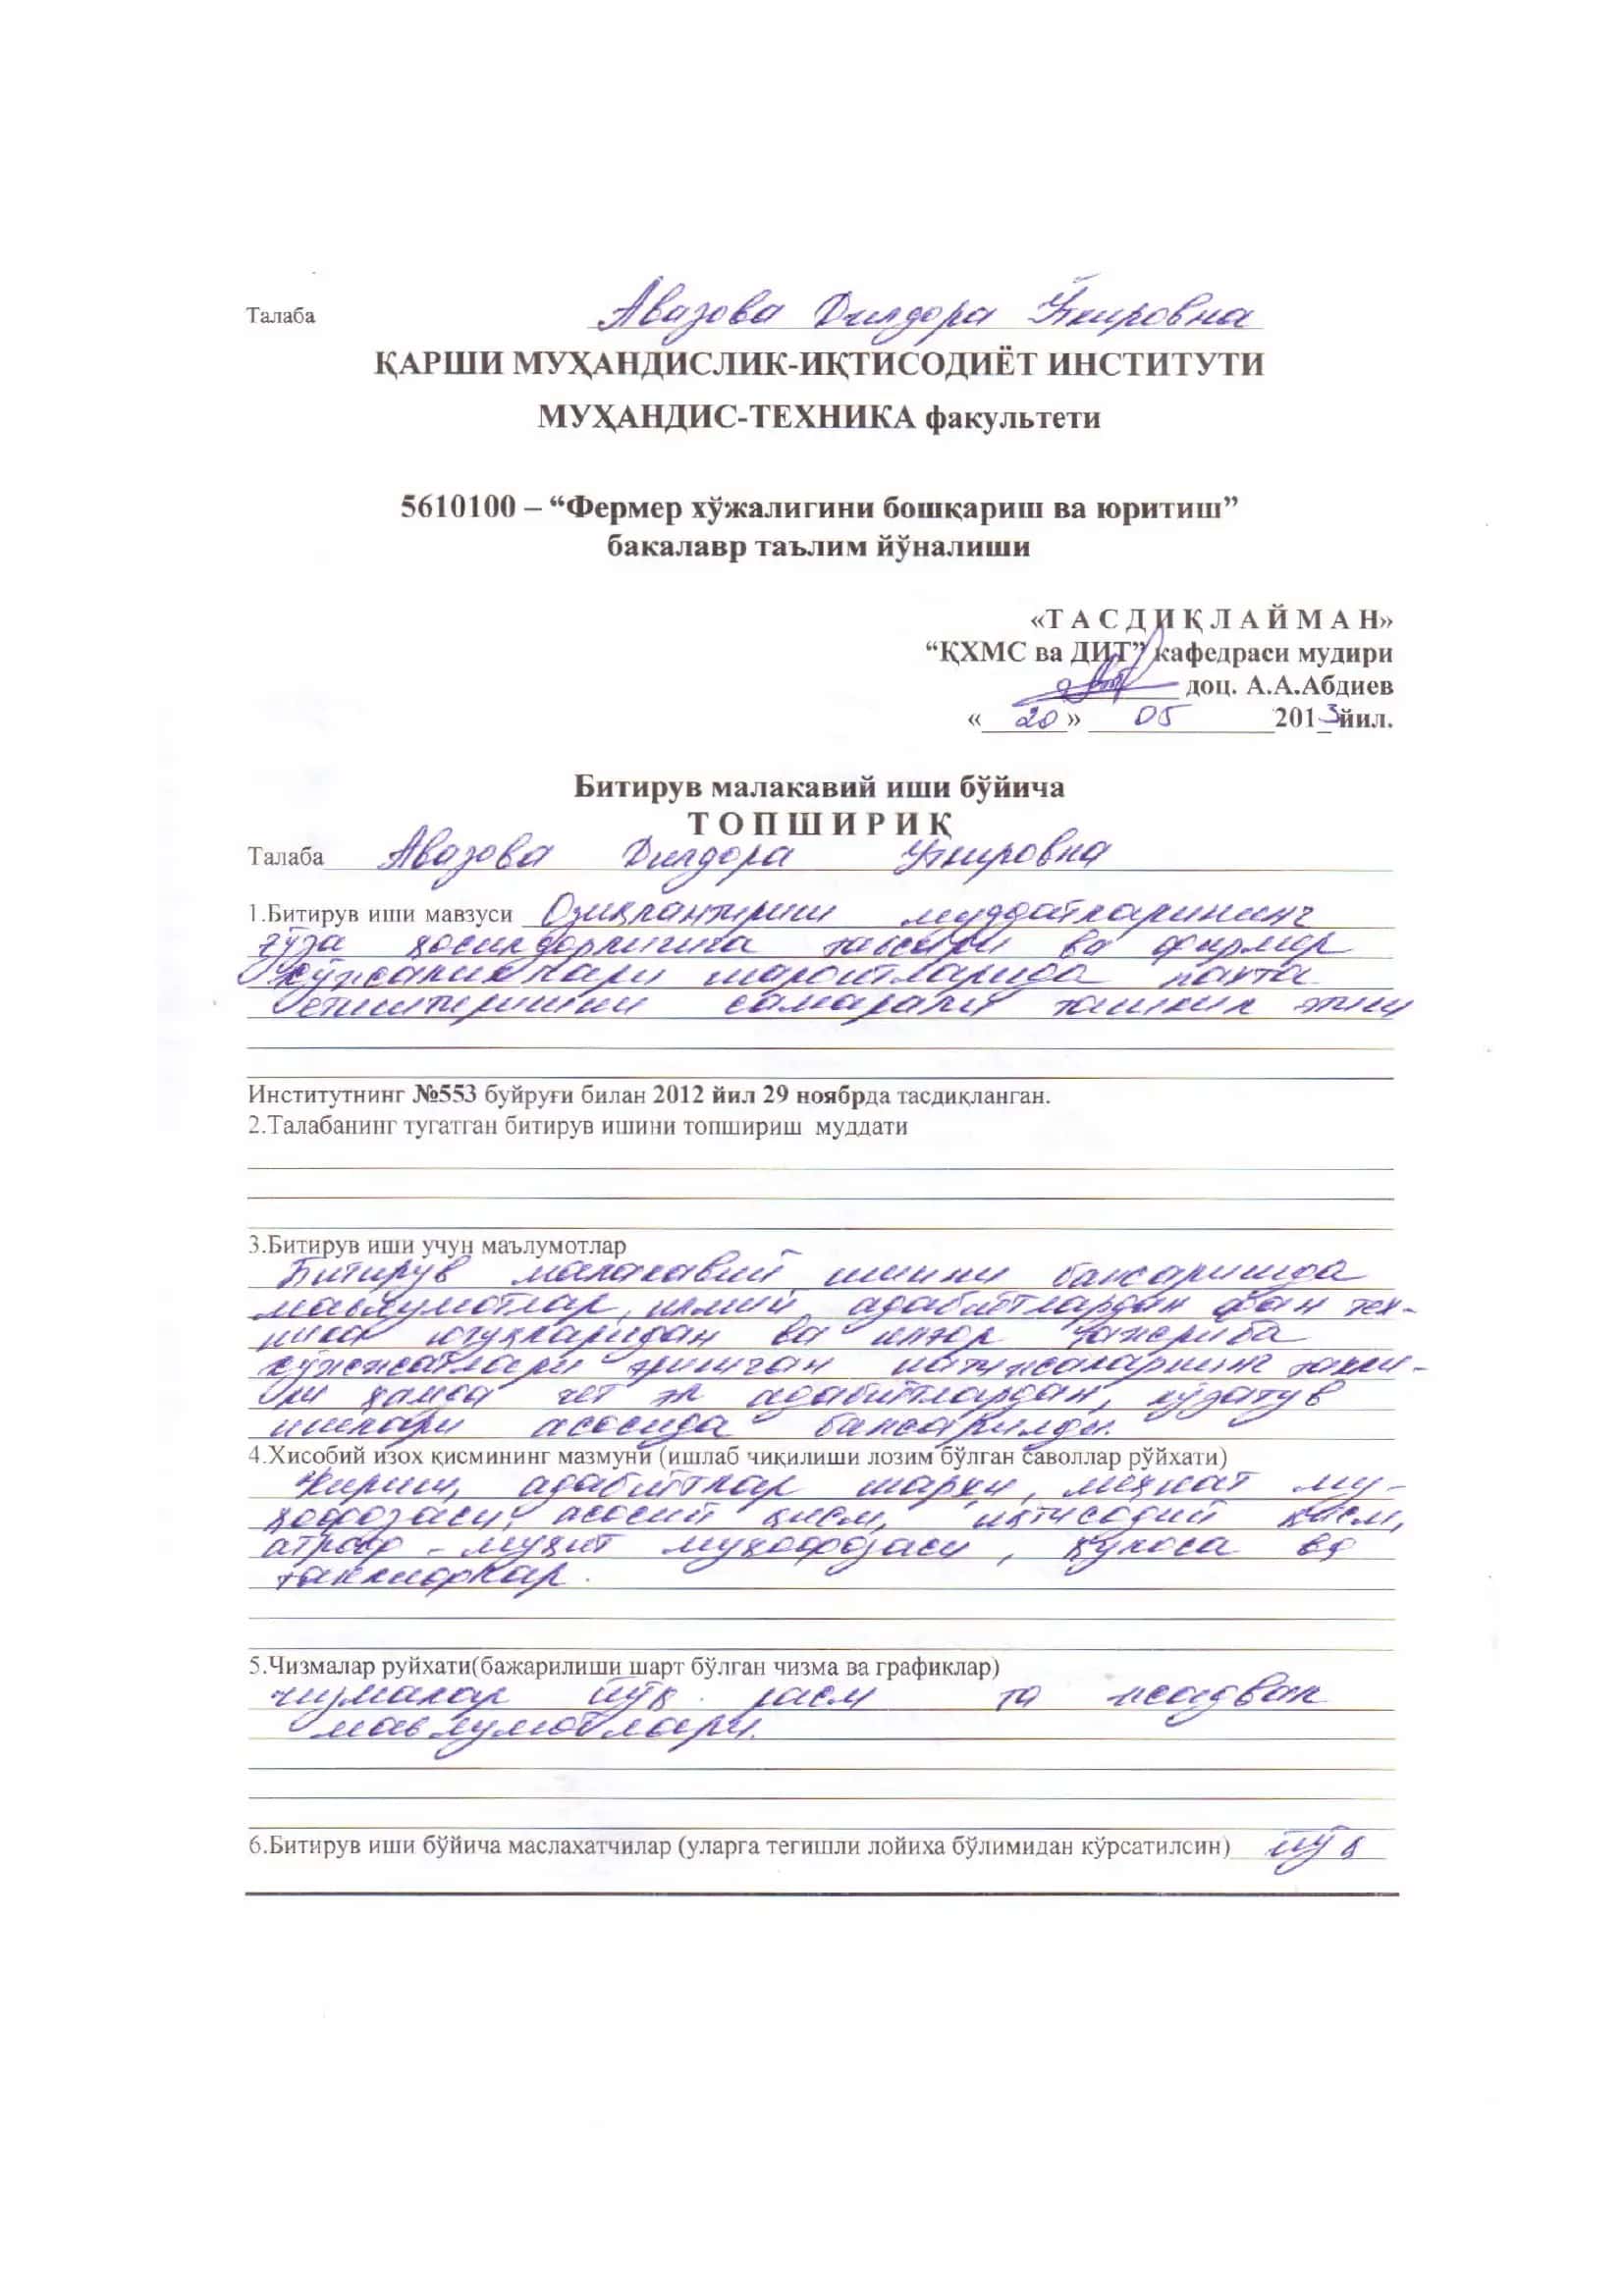 Талаба Авазова Дилдора Ўткировна
ҚАРШИ МУҲАНДИСЛИК-ИҚТИСОДИЁТ ИНСТИТУТИ
МУҲАНДИС-ТЕХНИКА факультети
5610100 – “Фермер хўжалигини бошқариш ва юритиш”
бакалавр таълим йўналиши
«Т А С Д И Қ Л А Й М А Н»
“ҚХМС ва ДИТ” кафедраси мудири
доц. А.А.Абдиев
«20» 05 2013йил.
Битирув малакавий иши бўйича
Т О П Ш И Р И Қ
Талаба Авазова Дилдора Ўткировна
1.Битирув иши мавзуси Озиқлантириш муддатларининг
ғўза ҳосилдорлигига таъсири ва фермер
хўжаликлари шароитларида пахта
етиштиришни самарали ташкил этиш
Институтнинг №553 буйруғи билан 2012 йил 29 ноябрда тасдиқланган.
2.Талабанинг тугатган битирув ишини топшириш муддати
3.Битирув иши учун маълумотлар
Битирув малакавий ишини бажаришда
маълумотлар, илмий адабиётлардан фан тех-
ника ютуқларидан ва илғор тажриба
хужжатлари эришган натижаларнинг
ҳамда чет эл адабиётлардан, кўзатув
ишлари асосида бажарилди.
4.Хисобий изох қисмининг мазмуни (ишлаб чиқилиши лозим бўлган саволлар рўйхати)
Кириш, адабиётлар шарҳи, меҳнат му-
ҳофазаси, асосий қисм, иқтисодий қисм,
атроф-муҳит муҳофазаси, ҳулоса ва
таклифлар.
5.Чизмалар руйхати(бажарилиши шарт бўлган чизма ва графиклар)
чизмалар йўқ. расм та жадвал
маълумотлари.
6.Битирув иши бўйича маслахатчилар (уларга тегишли лойиха бўлимидан кўрсатилсин) йўқ